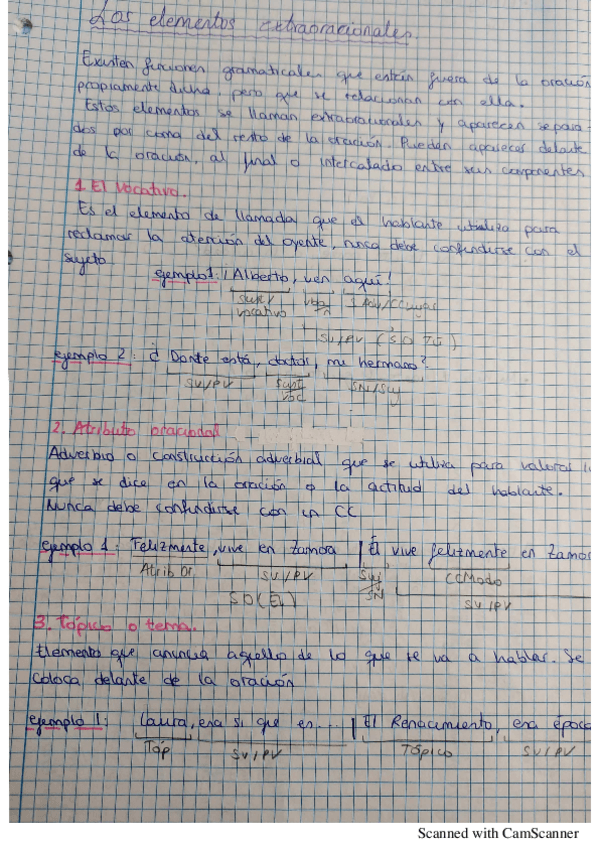 Los elementos extraoracionales.
Existen funciones gramaticales que están fuera de la oración
propiamente dicha, pero que se relacionan con ella.
Estos elementos se llaman extraoracionales y aparecen separa-
dos por coma del resto de la oración. Pueden aparecer delante
de la oración, al final o intercalado entre sus componentes
1 El vocativo.
Es el elemento de llamada que el hablante utiliza para
reclamar la atención del oyente, nunca debe confundirse con el
sujeto
ejemplo1: ¡Alberto, ven aquí!
Sust/ Vbo
vocativo N
SV/PV (SO TÚ)
ejemplo 2: ¿Donte está, doctor, mi hermano?
SV/PV Sust SN/Suj
Voc
2. Atributo oracional
Adverbio o construcción adverbial que se utiliza para valorar l
que se dice en la oración o la actitud del hablante.
Nunca debe confundirse con un CC
ejemplo 1: Felizmente, vive en Zamora | Él vive felizmente en Zamor
Atrib Or. SV/PV Suj CCModo
SO(Él) SN SV/PV
3. Tópico o tema.
Elemento que anuncia aquello de lo que se va a hablar. Se
coloca delante de la oración
ejemplo 1: Laura, esa si que en... | El Renacimiento, esa época
Tóp SV/PV Tópico SV/PV
Scanned with CamScanner